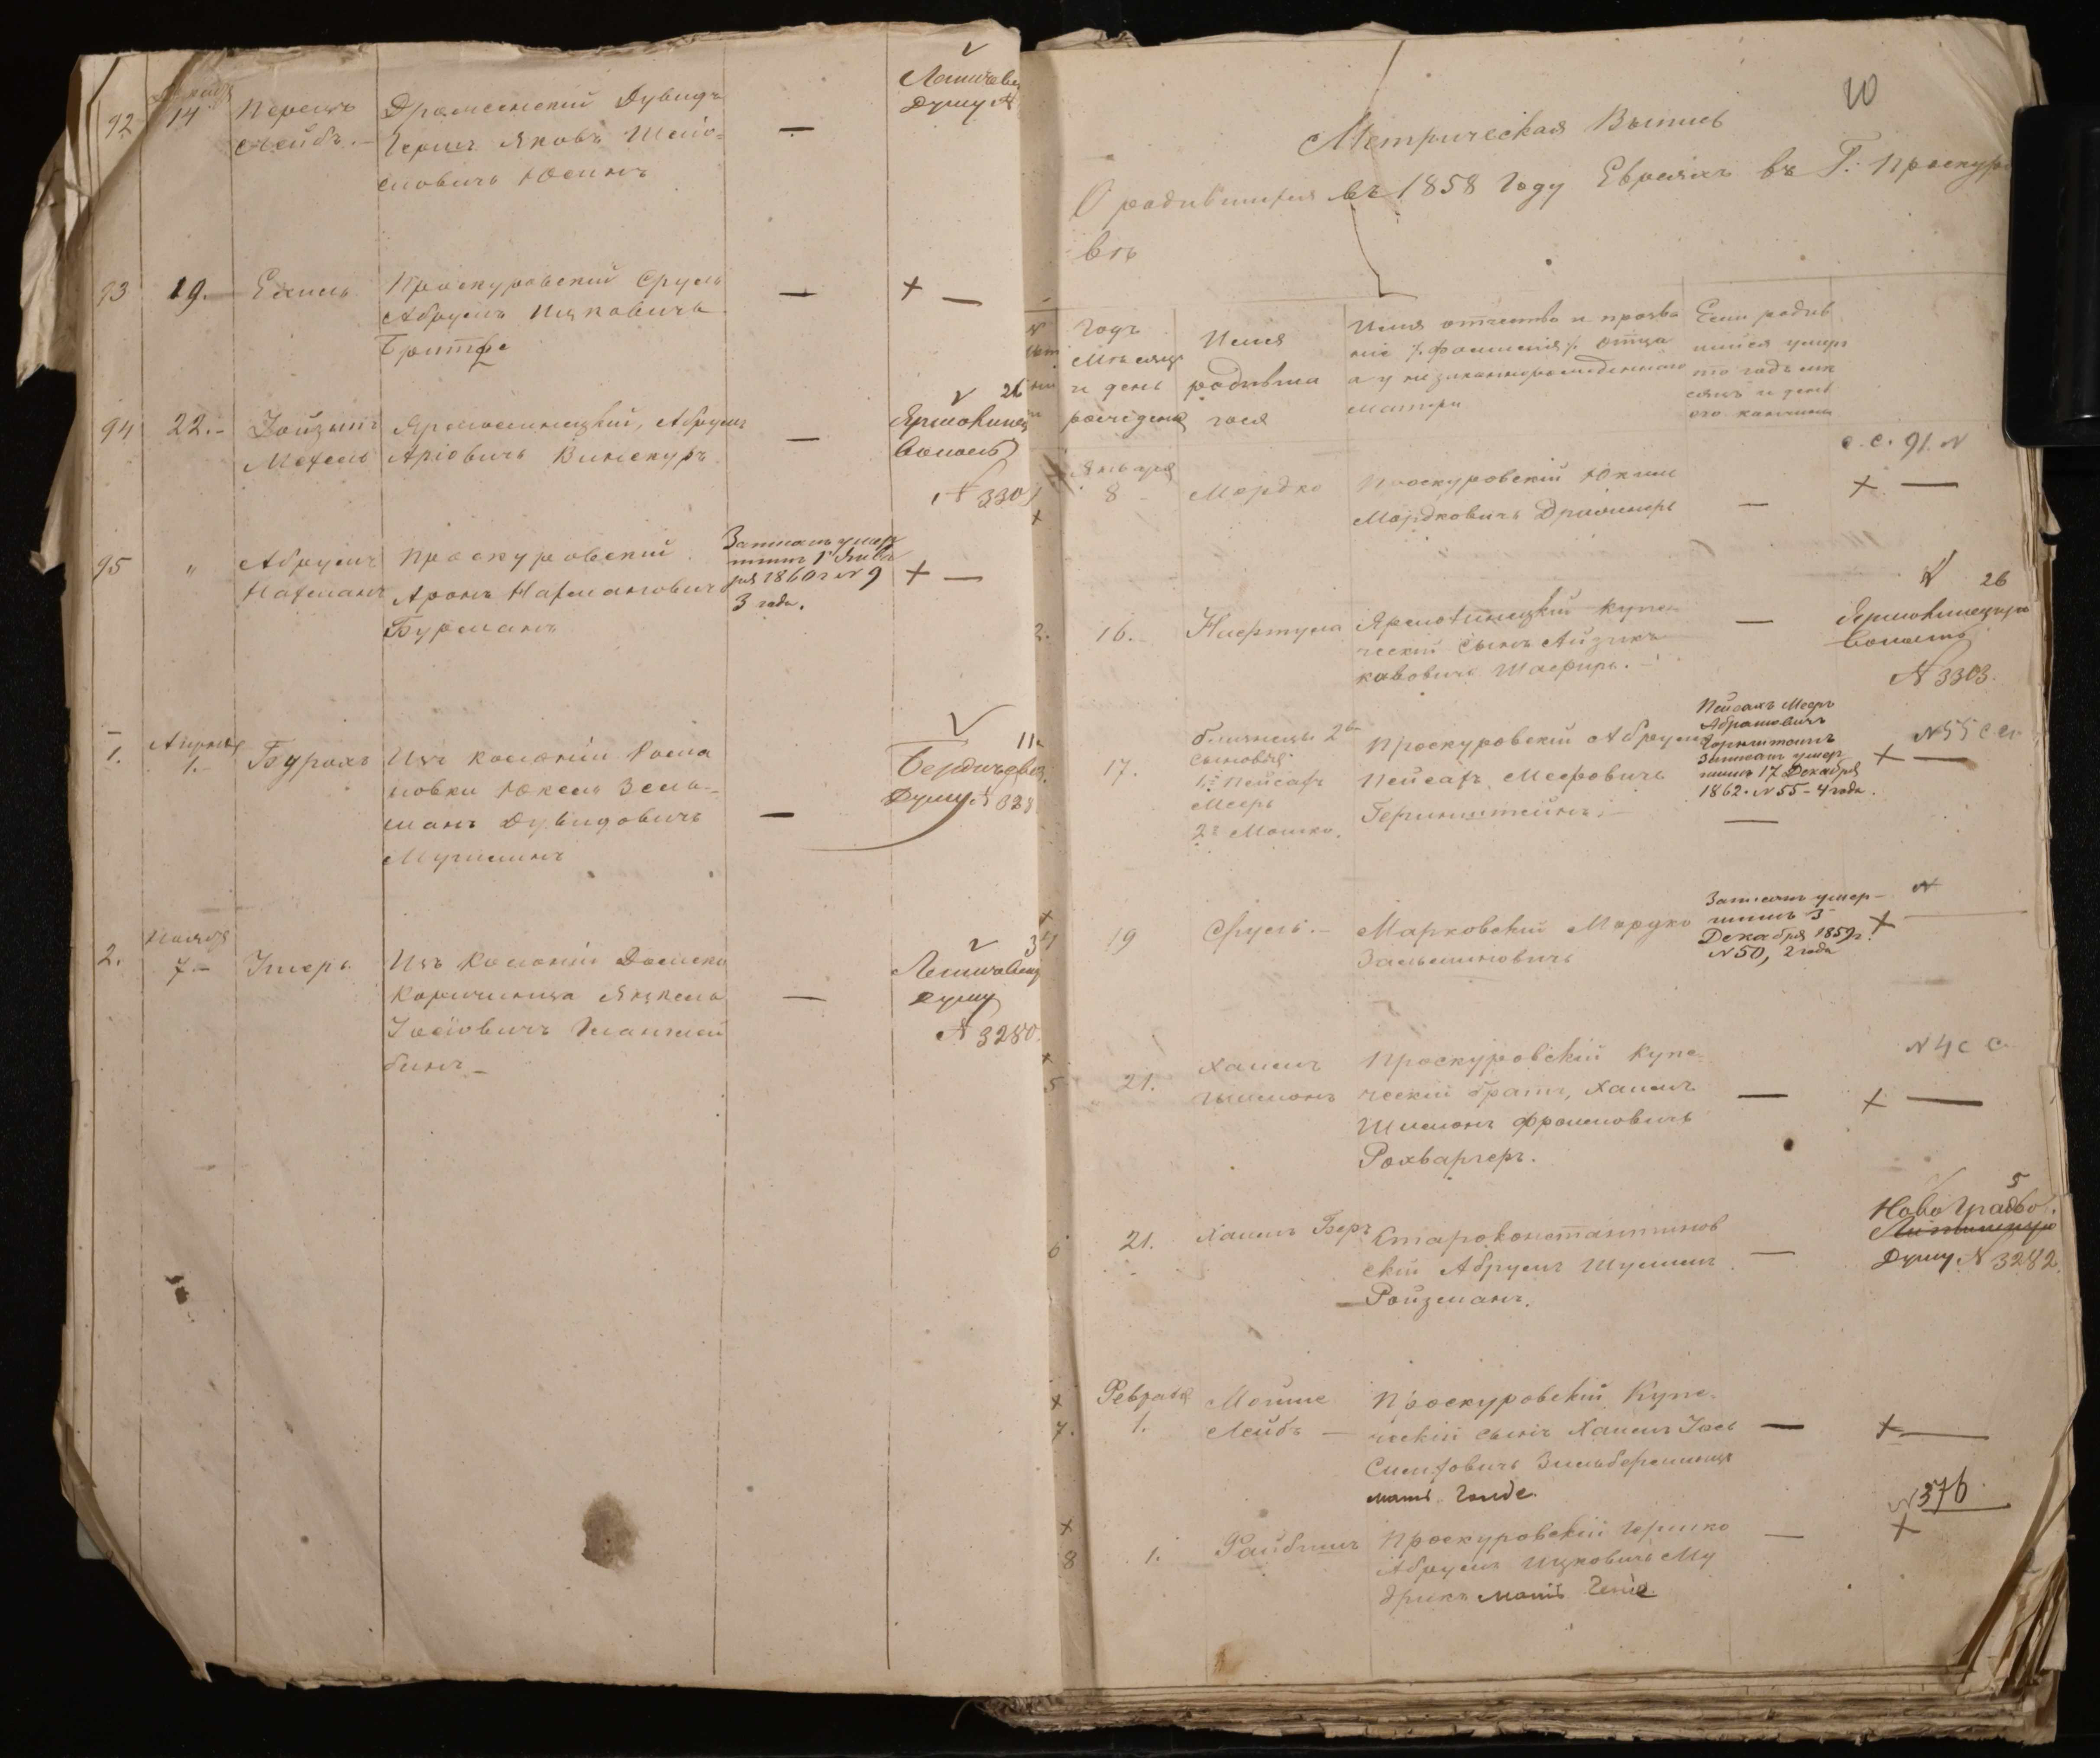 92
14
Перець
Лейбъ. —
Драженскій Дувидъ
Гершъ Яковъ Шміо-
ловичъ Юсимъ
—
Летичевск
Думу №
93
19. —
Ехиль
Проскуровскій Сруль
Абрумъ Ицковичъ
—
+ —
94
22. —
Іойзипъ
Мехель
Ярмолинецкій, Абрумъ
Аріовичъ Винокуръ
—
26
Ярмолинец
Волость
№ 330
95
"
Абрумъ
Нахманъ
Проскуровскій
Аронъ Нахмановичъ
Бурманъ
Записанъ умер
шимъ 1 Янва
ря 1860 г № 9
3 года.
+ —
1.
Апреля
1. —
Бурахъ
Изъ колоніи Рома
новки Юкель Зель-
манъ Дувидовичъ
—
11.
Бердичевск.
Думу № 328
2.
Ноября
7. —
Умеръ
Изъ Колоніи Домско
Коричинца Янкель
Іосіовичъ
—
Летичевск
думу
№ 3280.
10
Метрическая Выпись
О родившихся въ 1858 Году Евреяхъ въ Г. Проскуро
вѣ
Годъ
Мѣсяцъ
и день
рожденія
Имя
родивша
гося
Имя отчество и прозва
ніе /: фамилія :/ отца
а у незаконнорожденного
матери
Если родив
шійся умеръ
то годъ мѣ
сяцъ и день
его кончины
с. с. 91. №
Января
8 —
Мордко
Проскуровскій Юкиль
Мордковичъ Драйширъ
—
+ —
2.
16. —
Нафтула
Ярмолинецкій купе-
ческій сынъ Айзикъ
ковичъ Шафиръ. —
—
№ 26
Ярмолинецкую
Волость
№ 3303.
17.
близнецы 2
сыновья:
1й Пейсахъ
Мееръ
2й Мошко.
Проскуровскій Абрумъ
Пейсахъ Мееровичъ
Герншштейнъ. —
Пейсахъ Мееръ
Абрамовичъ
Горнштейнъ
Записанъ умер
шимъ 17 Декабря
1862. № 55 - 4 года.
—
№ 55 с с.
+ —
4
19
Сруль. —
Марковскій Мордко
Зельминовичъ
Записанъ умер-
шимъ 3
Декабря 1859 г.
№ 50, 2 года
№
+ —
5
21.
Хаимъ
Шимонъ
Проскуровскій Купе-
ческій братъ, Хаимъ
Шимонъ Фроимовичъ
Рохваргеръ.
—
№ 4 с с.
+ —
6
21.
Хаимъ Беръ
Староконстантинов
скій Абрумъ Шулимъ
Ройзманъ.
—
5
Новоградво.
Думу № 3282.
+
7.
Февраля
1.
Мойше
Лейбъ —
Проскуровскій Купе-
ческій сынъ Хаимъ Іось
Симховичъ Зильберминцъ
мать Голде.
—
+ —
+
8
1.
Файбишъ
Проскуровскій Гершко
Абрумъ Ицковичъ Му
дрикъ мать Геніе
—
№ 376
+